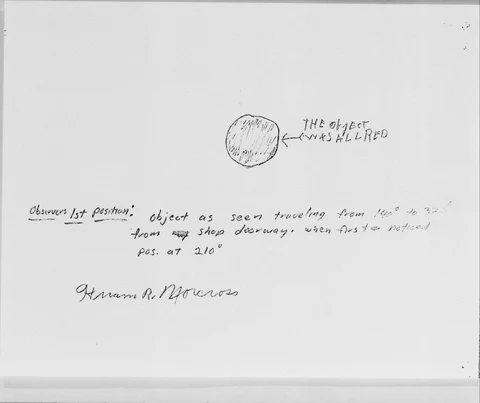 THE Object
WAS ALL RED
Observers 1st Position: Object as seen traveling from 140° to
from shop doorway. when first noticed
pos. at 210°
Hiram R. Norcross